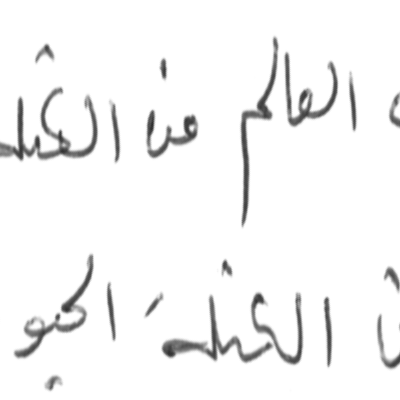 العالم من الكتلـ
الكتلة الحيو